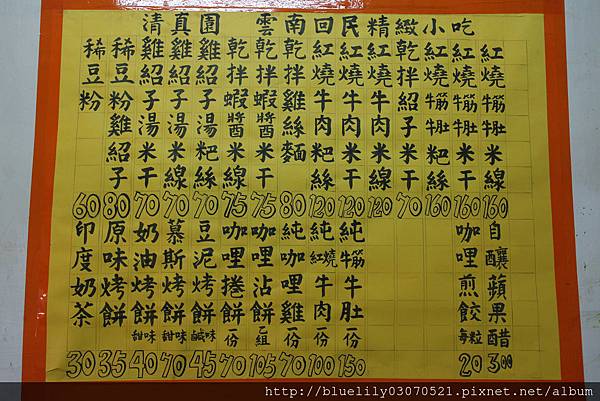 清真園 雲南回民精緻小吃
紅燒牛筋牛肚米線 160
紅燒牛筋牛肚米干 160
紅燒牛筋牛肚粑絲 160
乾拌紹子米干 70
紅燒牛肉米線 120
紅燒牛肉米干 120
紅燒牛肉粑絲 120
乾拌雞絲麵 80
乾拌蝦醬米干 75
乾拌蝦醬米線 75
雞紹子湯粑絲 70
雞紹子湯米線 70
雞紹子湯米干 70
稀豆粉雞紹子 80
稀豆粉 60
自釀蘋果醋 300
咖哩煎餃 每粒 20
純牛筋牛肚 一份 150
純紅燒牛肉 一份 100
純咖哩雞 一份 70
咖哩沾餅 一組 105
咖哩捲餅 一份 70
豆泥烤餅 鹹味 45
慕斯烤餅 甜味 70
奶油烤餅 甜味 40
原味烤餅 35
印度奶茶 30
http://bluelily03070521.pixnet.net/album